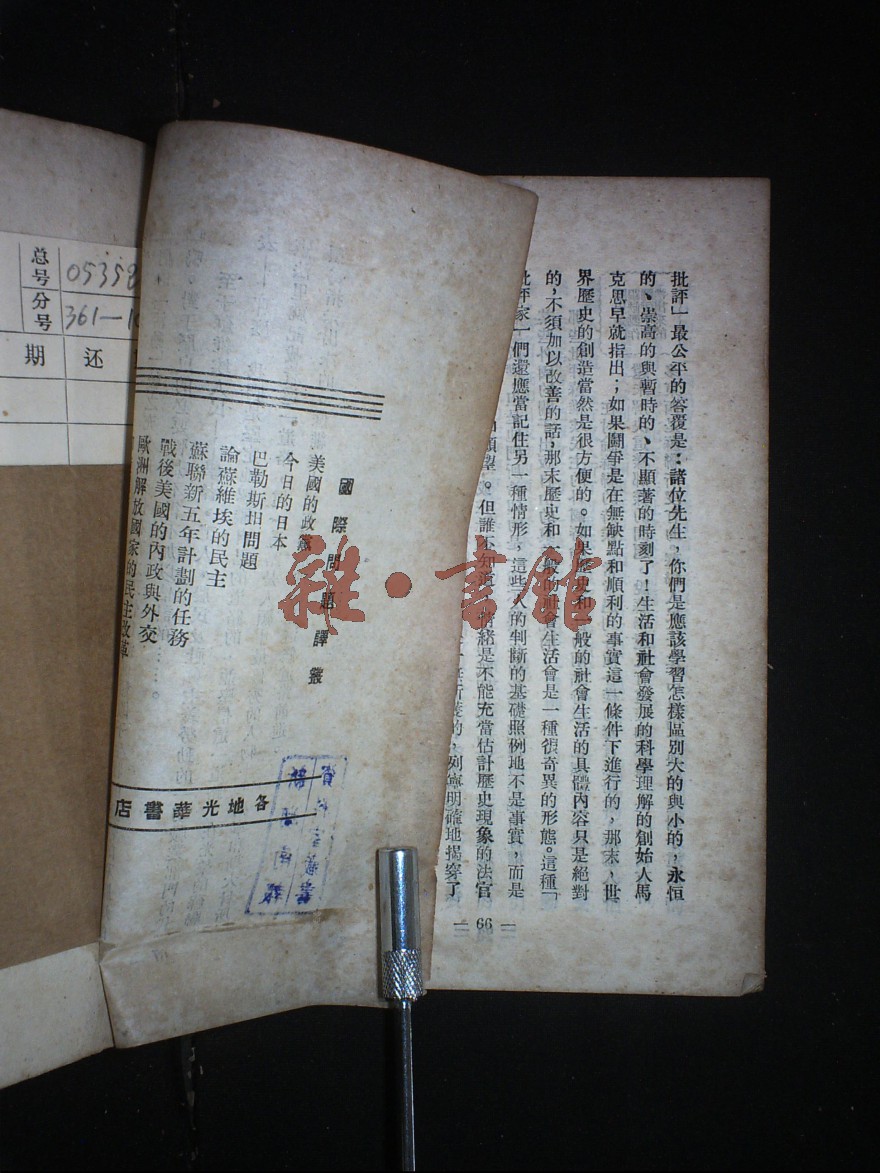 批評」最公平的答覆是：諸位先生，你們是應該學習怎樣區別大的與小的，永恒
的、崇高的與暫時的、不顯著的時刻了！生活和社會發展的科學理解的創始人馬
克思早就指出；如果鬭爭是在無缺點和順利的事實這一條件下進行的，那末，世
界歷史的創造當然是很方便的。如果歷史和一般的社會生活的具體內容只是絕對
的，不須加以改善的話，那末歷史和一般的社會生活會是一種很奇異的形態。這種「
批評家」們還應當記住另一種情形，這些人的判斷的基礎照例地不是事實，而是
願望。但誰不知道，情緒是不能充當估計歷史現象的法官
列寧明確地揭穿了
— 66 —
國際問題譯叢
美國的政黨
今日的日本
巴勒斯坦問題
論蘇維埃的民主
蘇聯新五年計劃的任務
戰後美國的內政與外交
歐洲解放國家的民主改革
各地光華書店
总号 05358
分号 361—1
还期
雜·書館